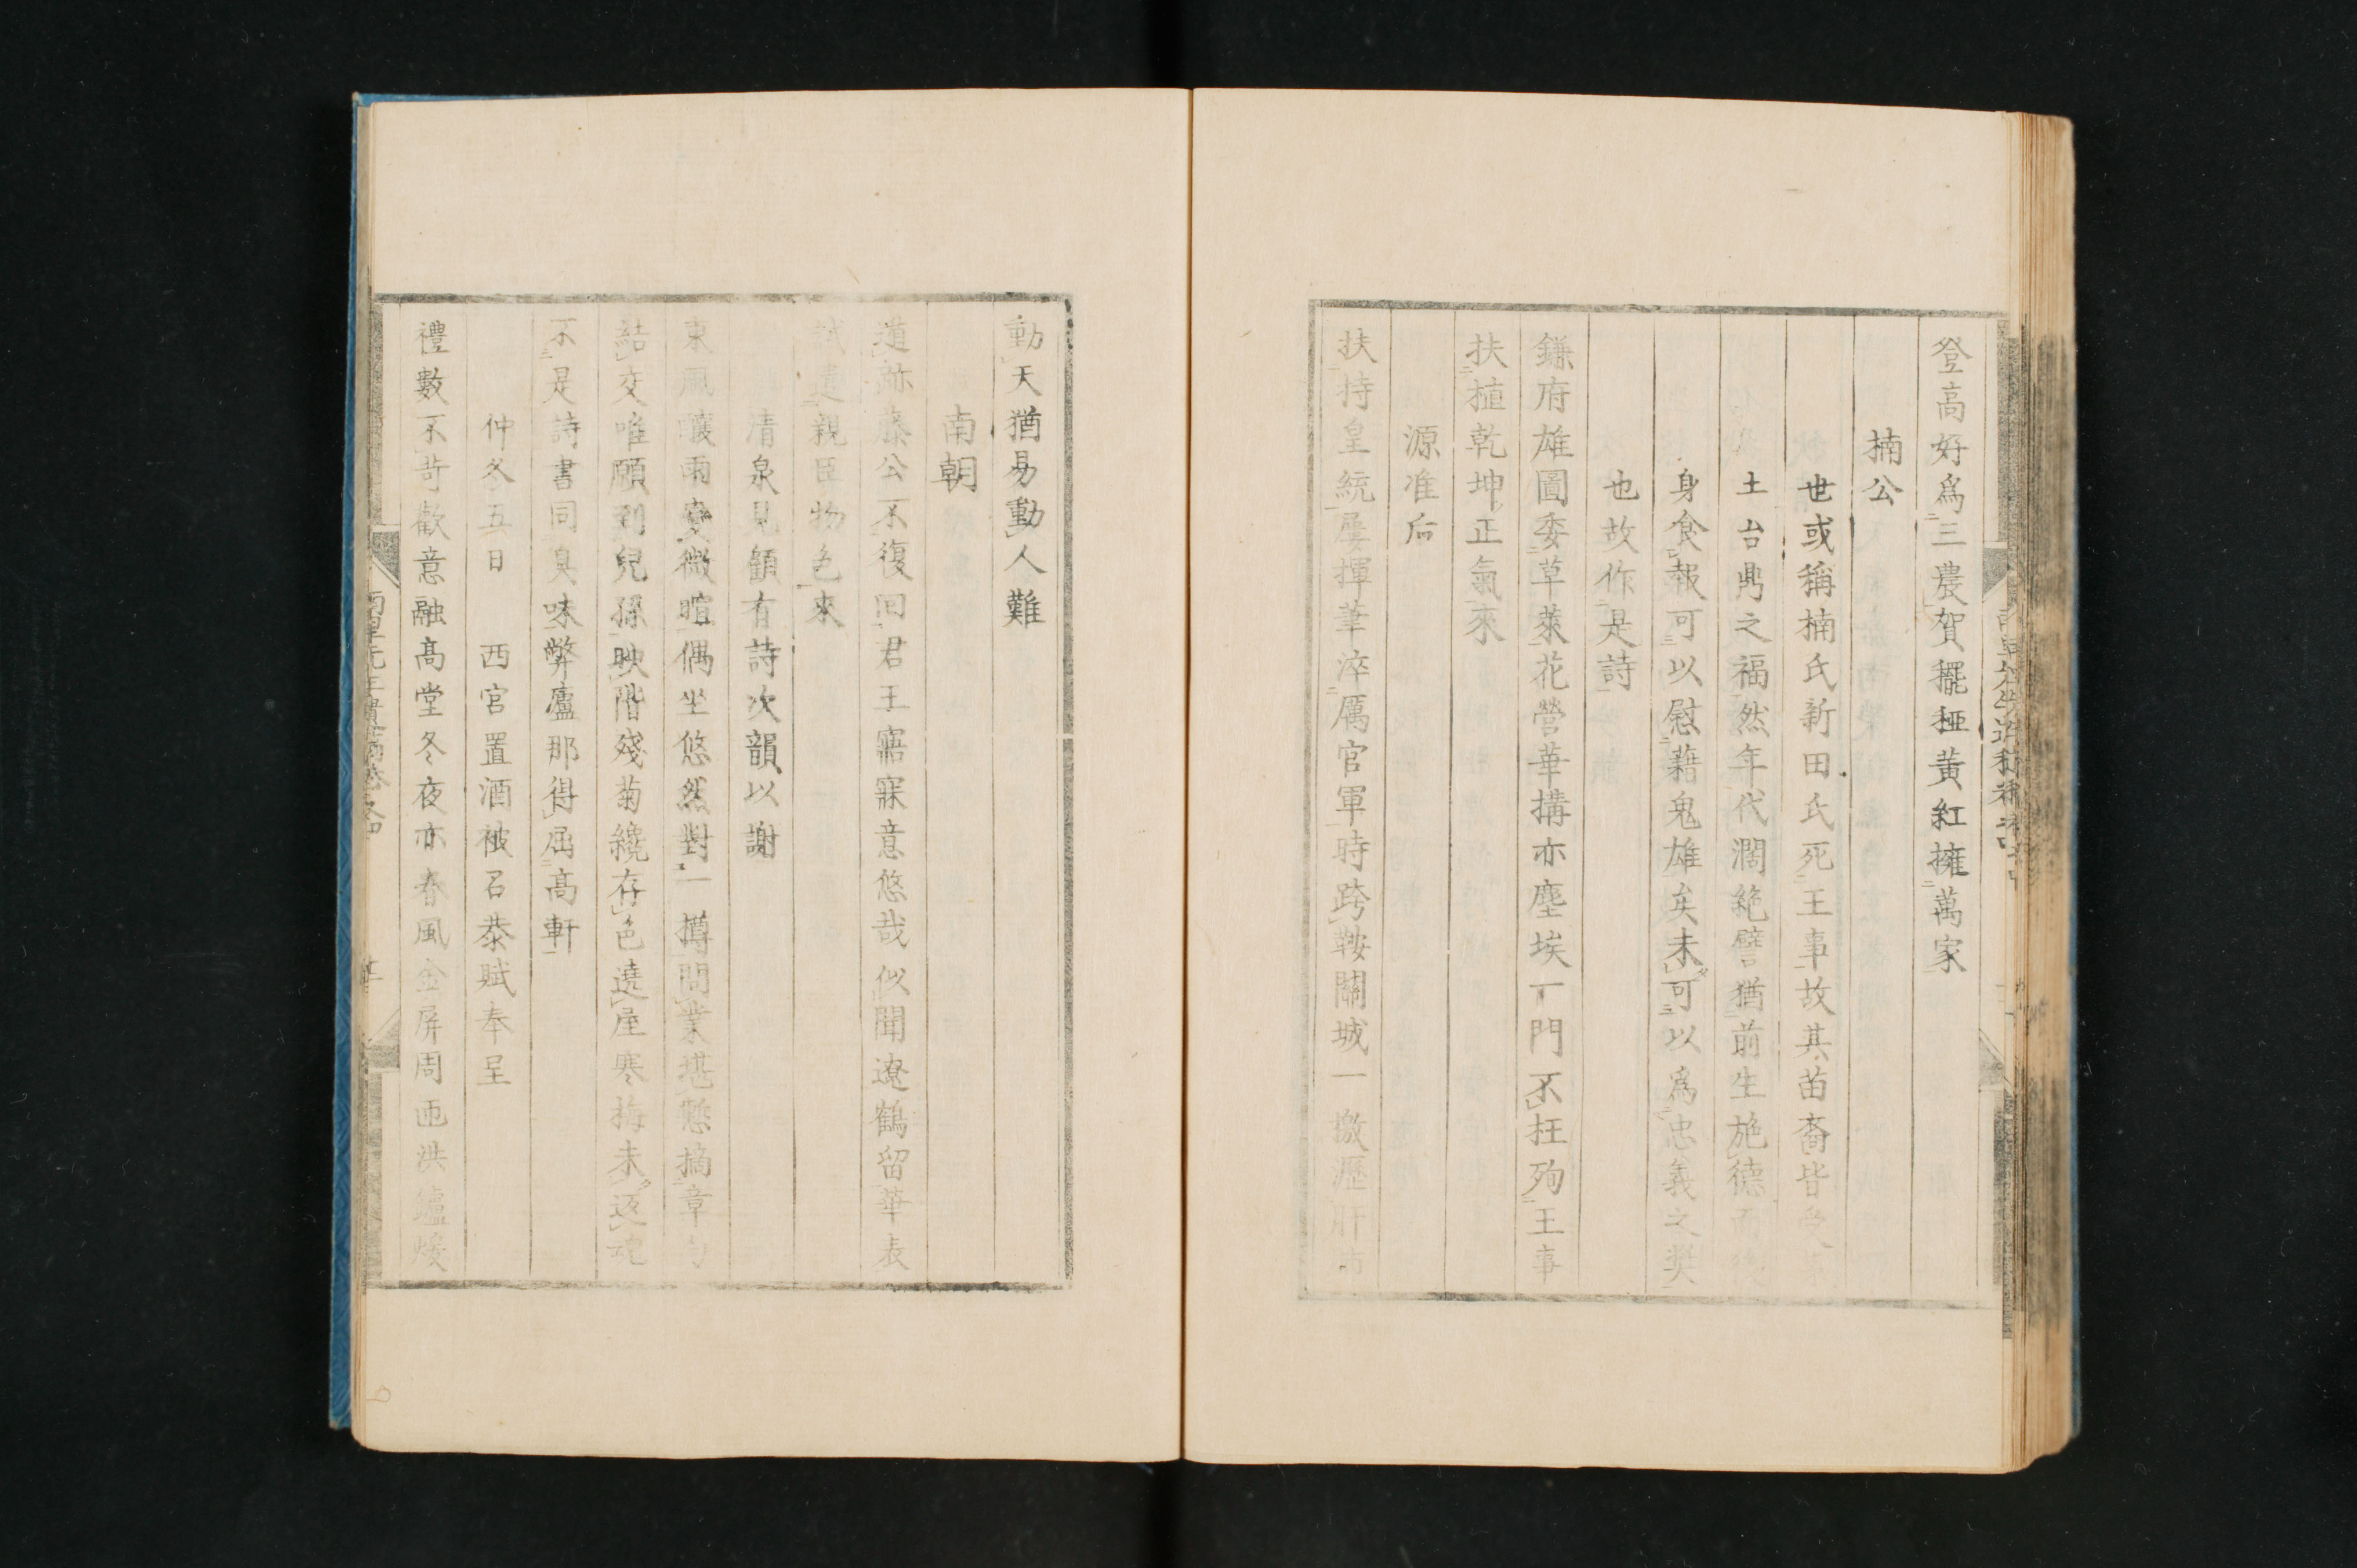 登高好爲三農賀䆉稏黄紅擁萬家
楠公
世或稱楠氏新田氏死王事故其苗裔皆
土台鼎之福然年代濶絶譬猶前生施德而
身食報可以慰藉鬼雄矣未可以爲忠義之奨
也故作是詩
鎌府雄圖委草萊花營華搆亦塵埃一門不枉殉王事
扶植乾坤正氣來
源准后
扶持皇統屡揮筆淬厲官軍時跨鞍關城一檄瀝肝
動天猶易動人難
南朝
道跡藤公不復回君王寤寐意悠哉似聞遼鶴留華表
試遣親臣物色來
清泉見顧有詩次韻以謝
東風釀雨變微暄偶坐悠然對一樽問業堪愁摘章句
結交唯願到兒孫映階殘菊纔存色遶屋寒梅未返魂
不是詩書同臭味弊廬那得屈高軒
仲冬五日 西宮置酒被召恭賦奉呈
禮數不苛歡意融高堂冬夜亦春風金屏周匝洪鑪煖